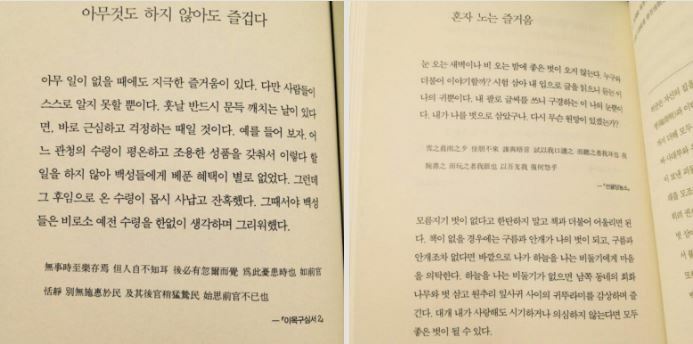 아무것도 하지 않아도 즐겁다
아무 일이 없을 때에도 지극한 즐거움이 있다. 다만 사람들이
스스로 알지 못할 뿐이다. 훗날 반드시 문득 깨치는 날이 있다
면, 바로 근심하고 걱정하는 때일 것이다. 예를 들어 보자. 어
느 관청의 수령이 평온하고 조용한 성품을 갖춰서 이렇다 할
일을 하지 않아 백성들에게 베푼 혜택이 별로 없었다. 그런데
그 후임으로 온 수령이 몹시 사납고 잔혹했다. 그때서야 백성
들은 비로소 예전 수령을 한없이 생각하며 그리워했다.
無事時至樂存焉 但人自不知耳 後必有忽爾而覺 爲此憂患時也 如前官
恬靜 別無施惠於民 及其後官稍猛鷙民 始思前官不已也
—『이목구심서 2』
혼자 노는 즐거움
눈 오는 새벽이나 비 오는 밤에 좋은 벗이 오지 않는다. 누구와
더불어 이야기할까? 시험 삼아 내 입으로 글을 읽으니 듣는 이
나의 귀뿐이다. 내 팔로 글씨를 쓰니 구경하는 이 나의 눈뿐이
다. 내가 나를 벗으로 삼았거니, 다시 무슨 원망이 있겠는가?
雪之晨雨之夕 佳朋不來 誰與晤言 試以我口讀之 而聽之者我耳也 我
腕書之 而玩之者我眼也 以吾友我 復何怨乎
—『선귤당농소』
모름지기 벗이 없다고 한탄하지 말고 책과 더불어 어울리면 된
다. 책이 없을 경우에는 구름과 안개가 나의 벗이 되고, 구름과
안개조차 없다면 바깥으로 나가 하늘을 나는 비둘기에게 마음
을 의탁한다. 하늘을 나는 비둘기가 없으면 남쪽 동네의 회화
나무와 벗 삼고 원추리 잎사귀 사이의 귀뚜라미를 감상하며 즐
긴다. 대개 내가 사랑해도 시기하거나 의심하지 않는다면 모두
좋은 벗이 될 수 있다.